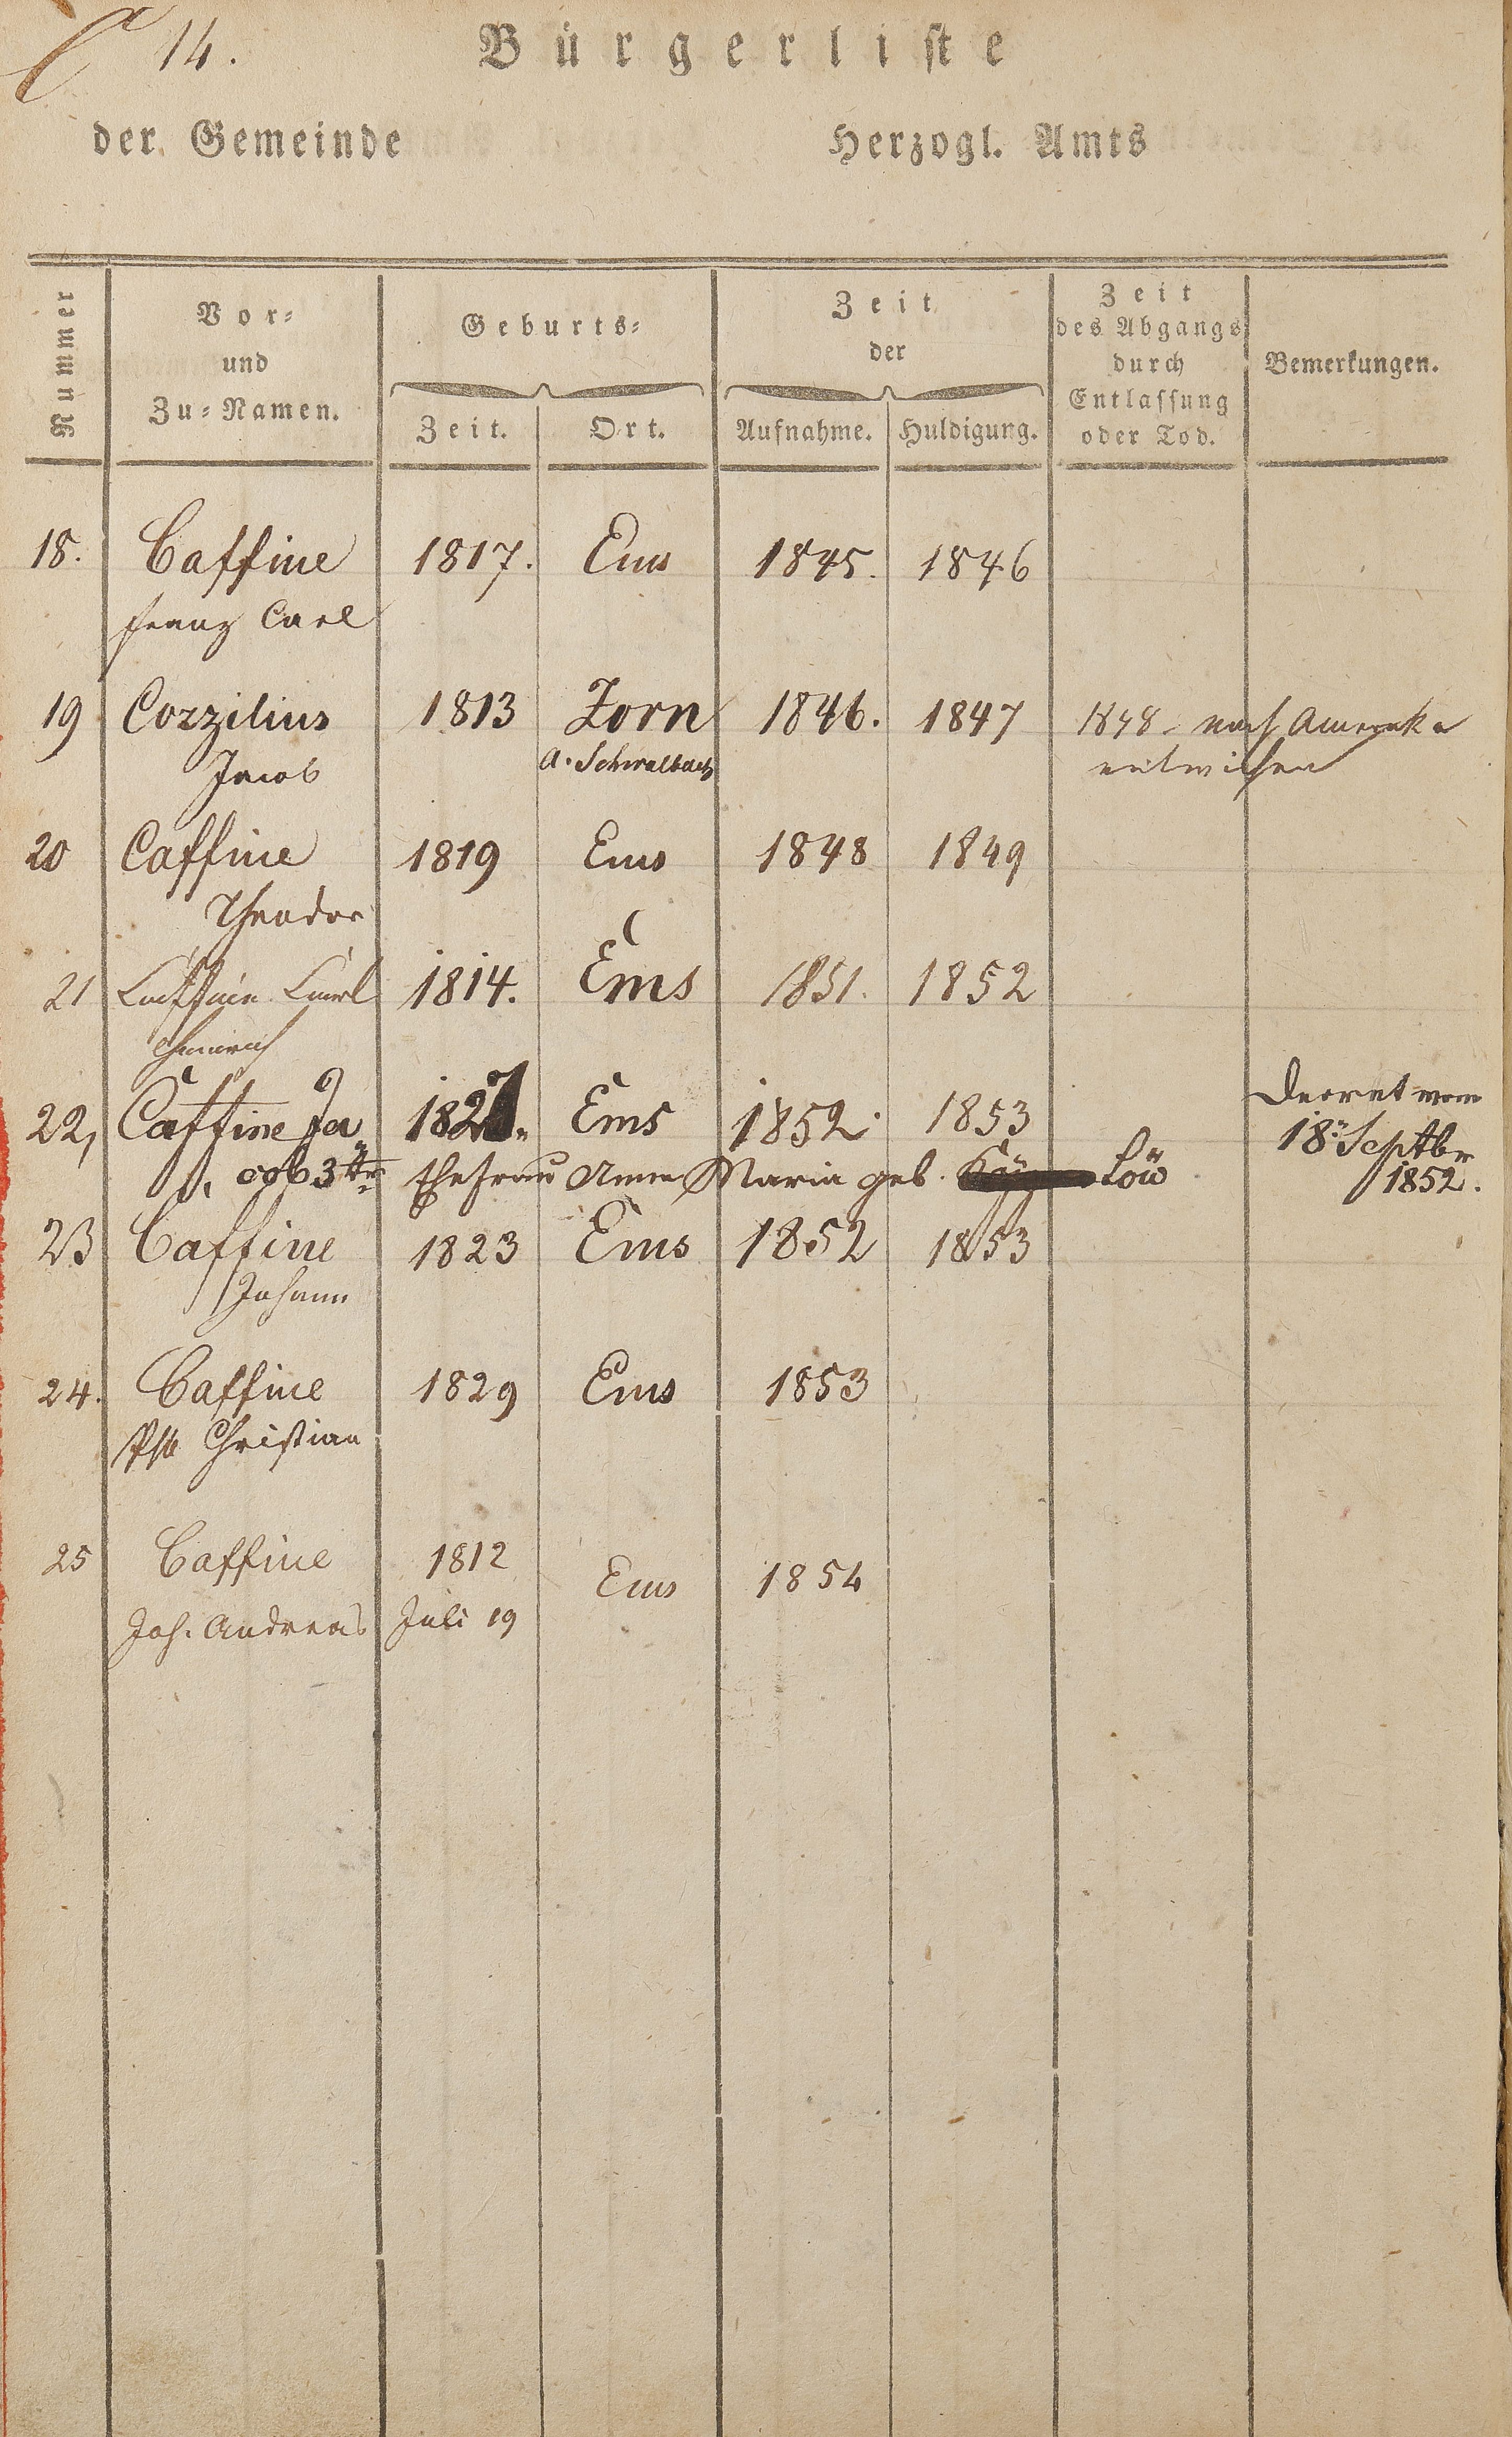 C 14.
Bürgerliste
der Gemeinde Herzogl. Amts
Nummer
Vor-
und
Zu-Namen.
Geburts-
Zeit. Ort.
Zeit
der
Aufnahme. Huldigung.
Zeit
des Abgangs
durch
Entlassung
oder Tod.
Bemerkungen.
18. Caffine 1817. Ems 1845. 1846
Franz Carl
19 Corzilius 1813 Zorn 1846. 1847 1848 nach Amerika
Jacob A. Schwalbach entwichen
20 Caffine 1819 Ems 1848 1849
Theodor
21 Caffine Carl 1814. Ems 1851. 1852
Heinrich
22, Caffine Ja 1827. Ems 1852. 1853 Decret vom
cob 3ter Ehefrau Anna Maria geb. Löw 18n Septbr
1852.
23 Caffine 1823 Ems 1852 1853
Johann
24. Caffine 1829 Ems 1853
Christian
25 Caffine 1812 Ems 1854
Joh. Andreas Juli 19